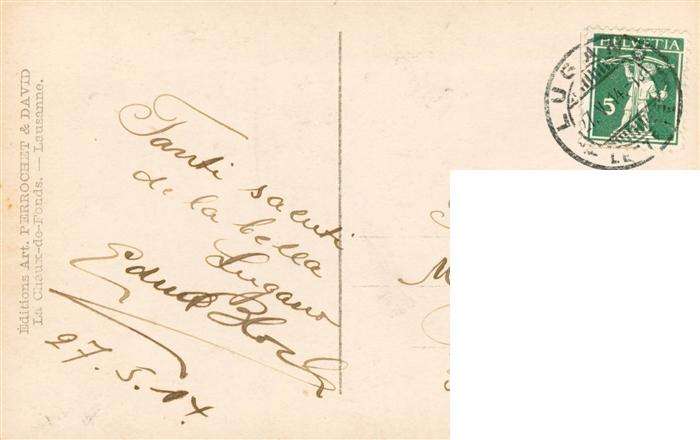 Éditions Art. PERROCHET & DAVID
La Chaux-de-Fonds. — Lausanne.
Tanti saluti
de la bella
Lugano
Bloch
27.5.14.
HELVETIA
5
LUGANO
M